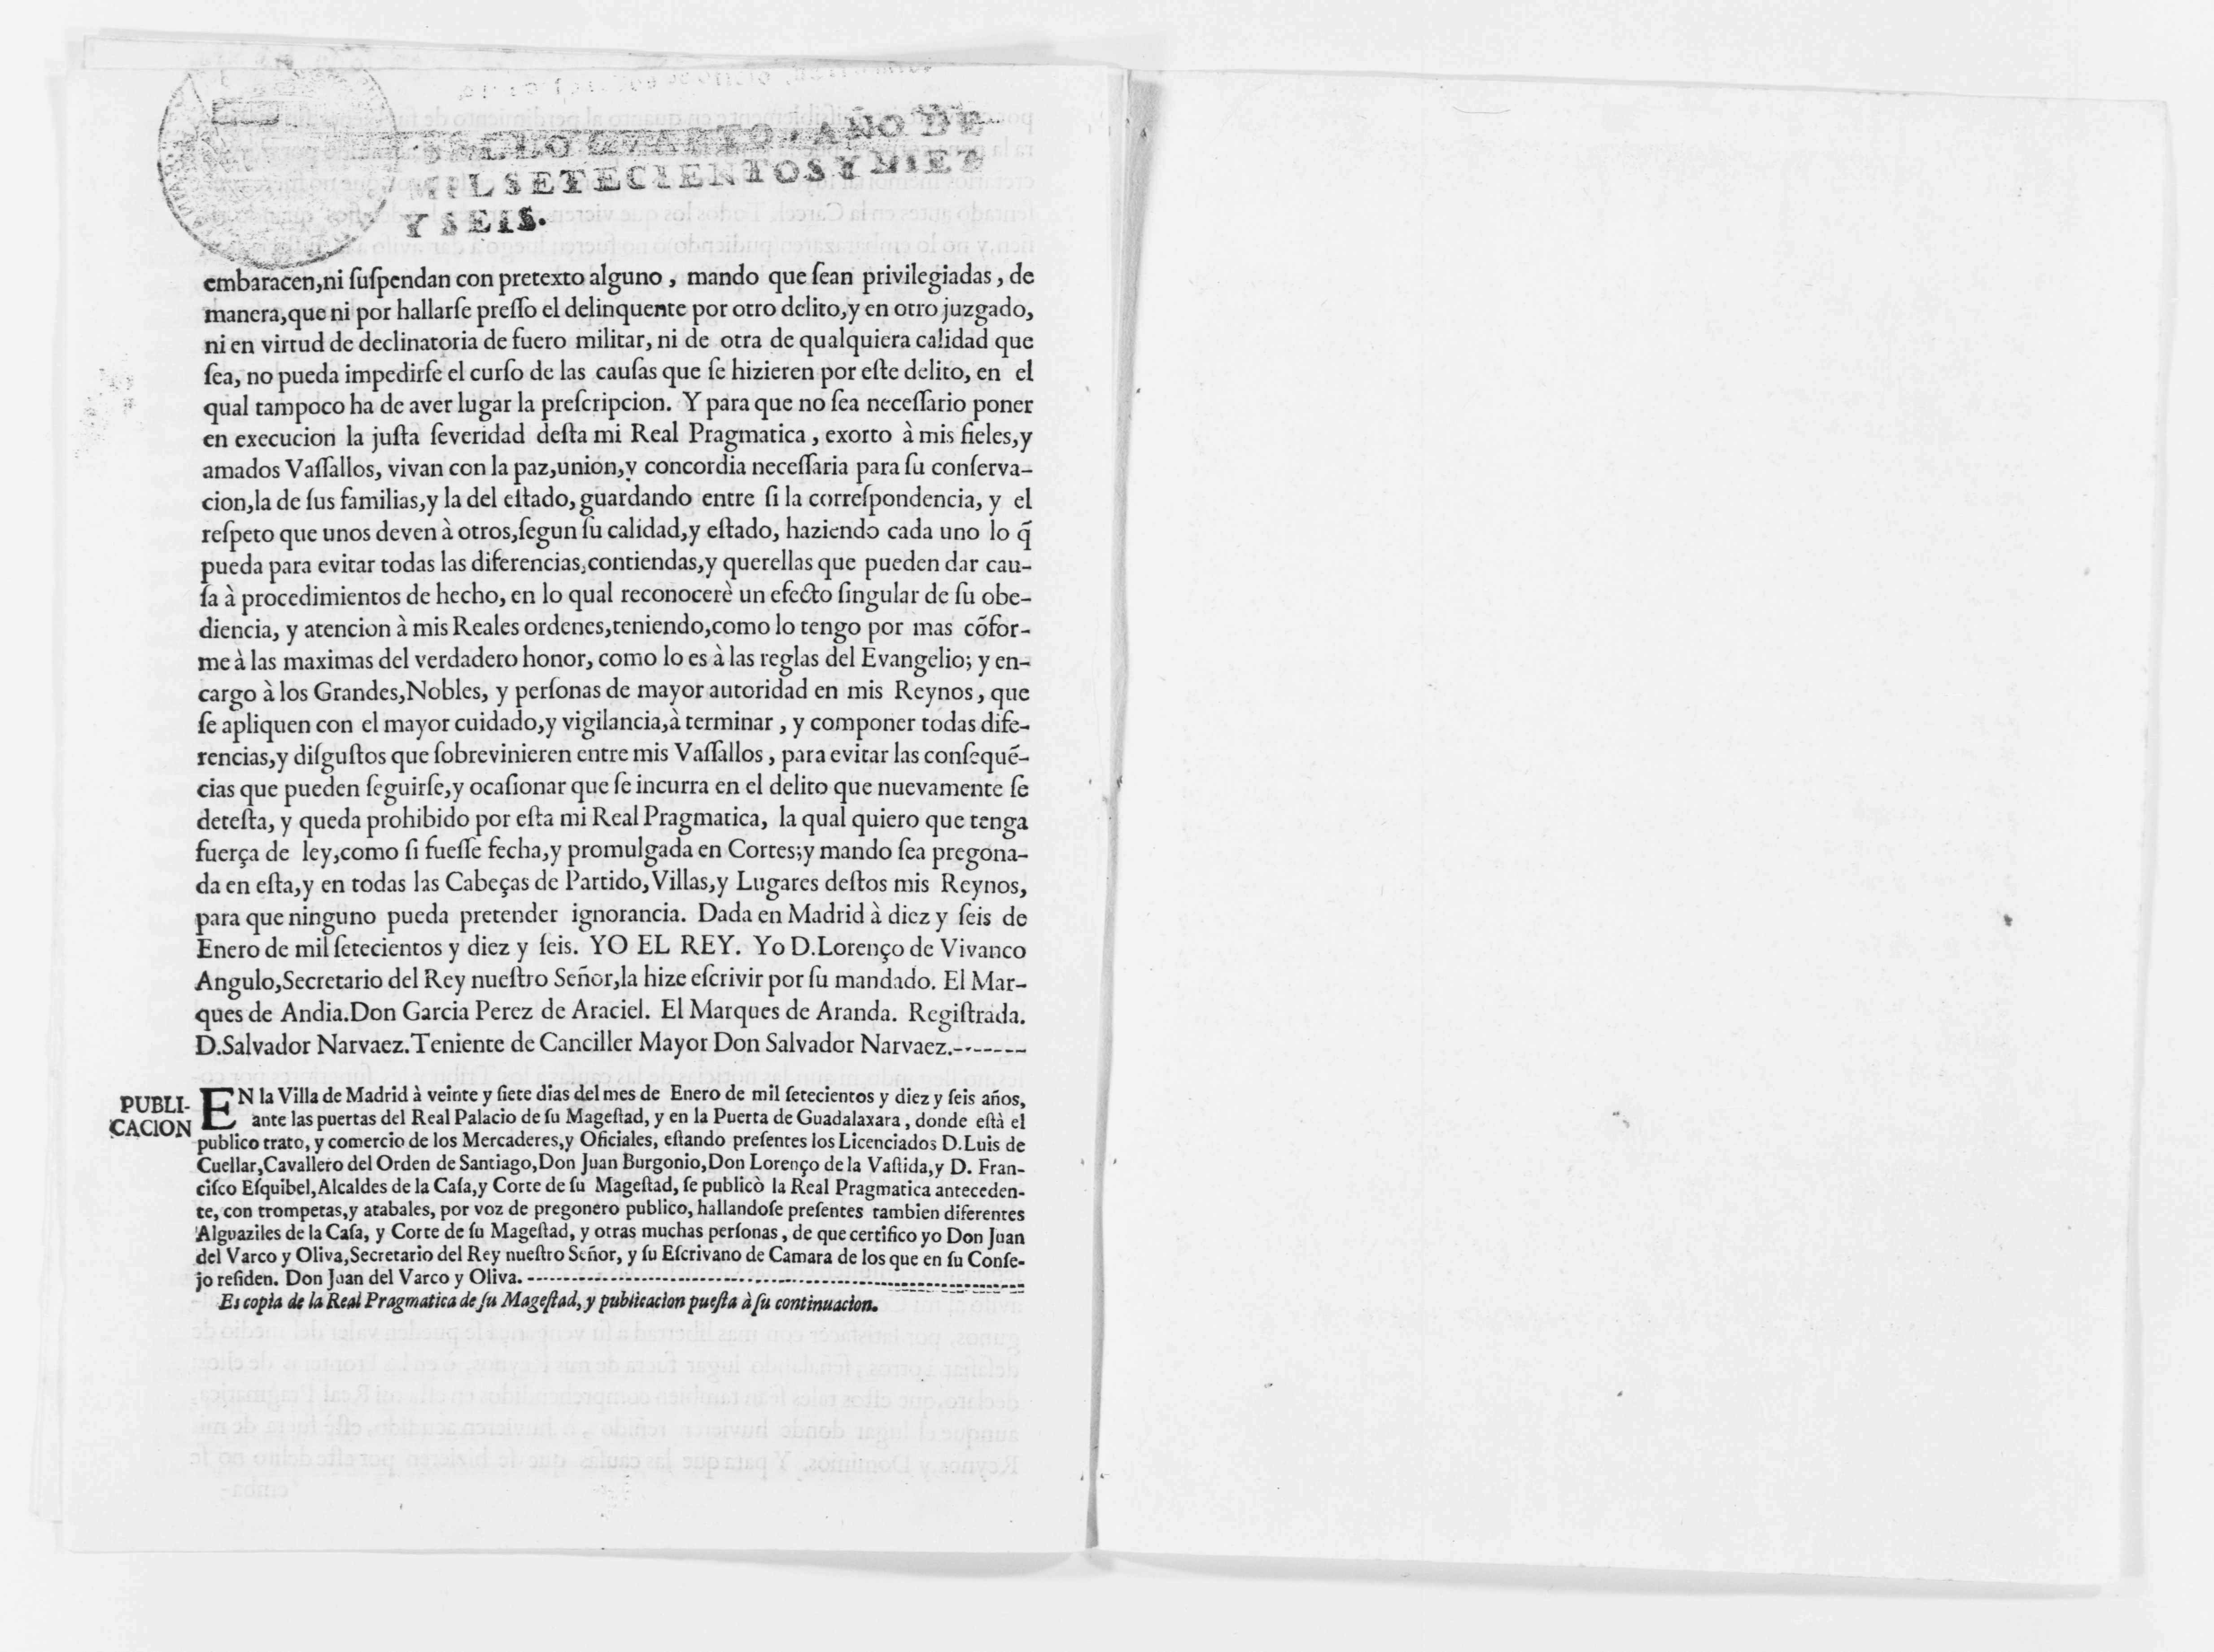 SELLO QVARTO, AÑO DE
MIL SETECIENTOS Y DIEZ
Y SEIS.
embaracen,ni ſuſpendan con pretexto alguno , mando que ſean privilegiadas , de
manera,que ni por hallarſe preſſo el delinquente por otro delito,y en otro juzgado,
ni en virtud de declinatoria de fuero militar, ni de otra de qualquiera calidad que
ſea, no pueda impedirſe el curſo de las cauſas que ſe hizieren por eſte delito, en el
qual tampoco ha de aver lugar la preſcripcion. Y para que no ſea neceſſario poner
en execucion la juſta ſeveridad deſta mi Real Pragmatica , exorto à mis fieles,y
amados Vaſſallos, vivan con la paz,union,y concordia neceſſaria para ſu conſerva-
cion,la de ſus familias,y la del eſtado, guardando entre ſi la correſpondencia, y el
reſpeto que unos deven à otros,ſegun ſu calidad,y eſtado, haziendo cada uno lo q̃
pueda para evitar todas las diferencias,contiendas,y querellas que pueden dar cau-
ſa à procedimientos de hecho, en lo qual reconocerè un efecto ſingular de ſu obe-
diencia, y atencion à mis Reales ordenes,teniendo,como lo tengo por mas cõfor-
me à las maximas del verdadero honor, como lo es à las reglas del Evangelio; y en-
cargo à los Grandes,Nobles, y perſonas de mayor autoridad en mis Reynos , que
ſe apliquen con el mayor cuidado,y vigilancia,à terminar , y componer todas dife-
rencias,y diſguſtos que ſobrevinieren entre mis Vaſſallos , para evitar las conſequẽ-
cias que pueden ſeguirſe,y ocaſionar que ſe incurra en el delito que nuevamente ſe
deteſta, y queda prohibido por eſta mi Real Pragmatica, la qual quiero que tenga
fuerça de ley,como ſi fueſſe fecha,y promulgada en Cortes;y mando ſea pregona-
da en eſta,y en todas las Cabeças de Partido,Villas,y Lugares deſtos mis Reynos,
para que ninguno pueda pretender ignorancia. Dada en Madrid à diez y ſeis de
Enero de mil ſetecientos y diez y ſeis. YO EL REY. Yo D.Lorenço de Vivanco
Angulo,Secretario del Rey nueſtro Señor,la hize eſcrivir por ſu mandado. El Mar-
ques de Andia.Don Garcia Perez de Araciel. El Marques de Aranda. Regiſtrada.
D.Salvador Narvaez.Teniente de Canciller Mayor Don Salvador Narvaez.-------
PUBLI-
CACION
EN la Villa de Madrid à veinte y ſiete dias del mes de Enero de mil ſetecientos y diez y ſeis años,
ante las puertas del Real Palacio de ſu Mageſtad, y en la Puerta de Guadalaxara , donde eſtà el
publico trato, y comercio de los Mercaderes,y Oficiales, eſtando preſentes los Licenciados D.Luis de
Cuellar,Cavallero del Orden de Santiago,Don Juan Burgonio,Don Lorenço de la Vaſtida,y D. Fran-
ciſco Eſquibel,Alcaldes de la Caſa,y Corte de ſu Mageſtad, ſe publicò la Real Pragmatica anteceden-
te, con trompetas,y atabales, por voz de pregonero publico, hallandoſe preſentes tambien diferentes
Alguaziles de la Caſa, y Corte de ſu Mageſtad, y otras muchas perſonas , de que certifico yo Don Juan
del Varco y Oliva,Secretario del Rey nueſtro Señor, y ſu Eſcrivano de Camara de los que en ſu Conſe-
jo reſiden. Don Juan del Varco y Oliva. ---------------------------------------------
Es copia de la Real Pragmatica de ſu Mageſtad, y publicacion pueſta à ſu continuacion.